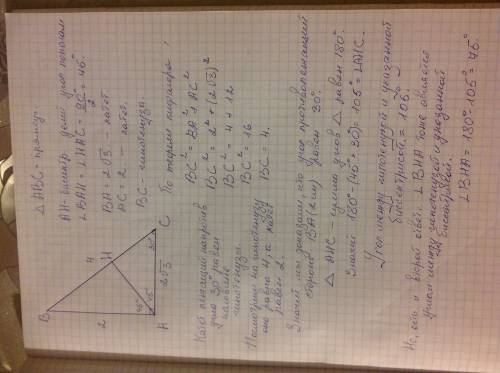 △ABC - прямоуг.
AH - биссектр. делит угол пополам
∠BAH = ∠HAC = 90°/2 = 45°
BA = 2√3 - катет
AC = 2 - катет.
BC - гипотенуза
По теореме пифагора:
BC² = BA² + AC²
BC² = 2² + (2√3)²
BC² = 4 + 12
BC² = 16
BC = 4.
B
4
H
2
45°
45°
30°
A
2√3
C
Катет лежащий напротив
угла 30° равен
половине
гипотенузы.
Посмотрим на гипотенузу
она равна 4, а катет
равен 2.
Значит, мы доказали, что угол противолежащий
стороне BA (2 см) равен 30°.
△AHC - сумма углов △ равен 180°.
Значит 180° - (45° + 30) = 105° = ∠AHC.
Угол между гипотенузой и указанной
биссектрисой = 105°
Но, есть и второй ответ. ∠BHA тоже является
углом между гипотенузой и указанной
биссектрисой.
∠BHA = 180° - 105° = 75°